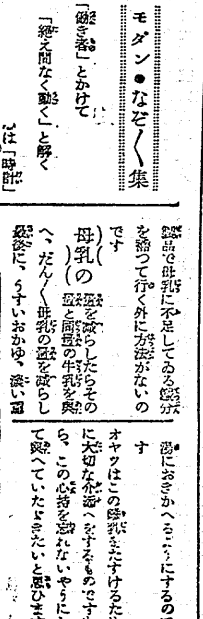 モダン●なぞ〳〵集
「働き者」とかけて
「絶え間なく動く」と解く
心は「時計」
品で母乳に不足してゐる
を補つて行く外に方法がないの
です
母乳の
量を減らしたらその
量と同量の牛乳を與
へ、だん〳〵母乳の量を減らし
最後に、うすいおかゆ、淡い
湯におきかへるやうにするので
す
オヤツはこの離乳をたすけるた
に大切な をするものです
ら、この心持を忘れないやうに
て與へていたゞきたいと思ひま